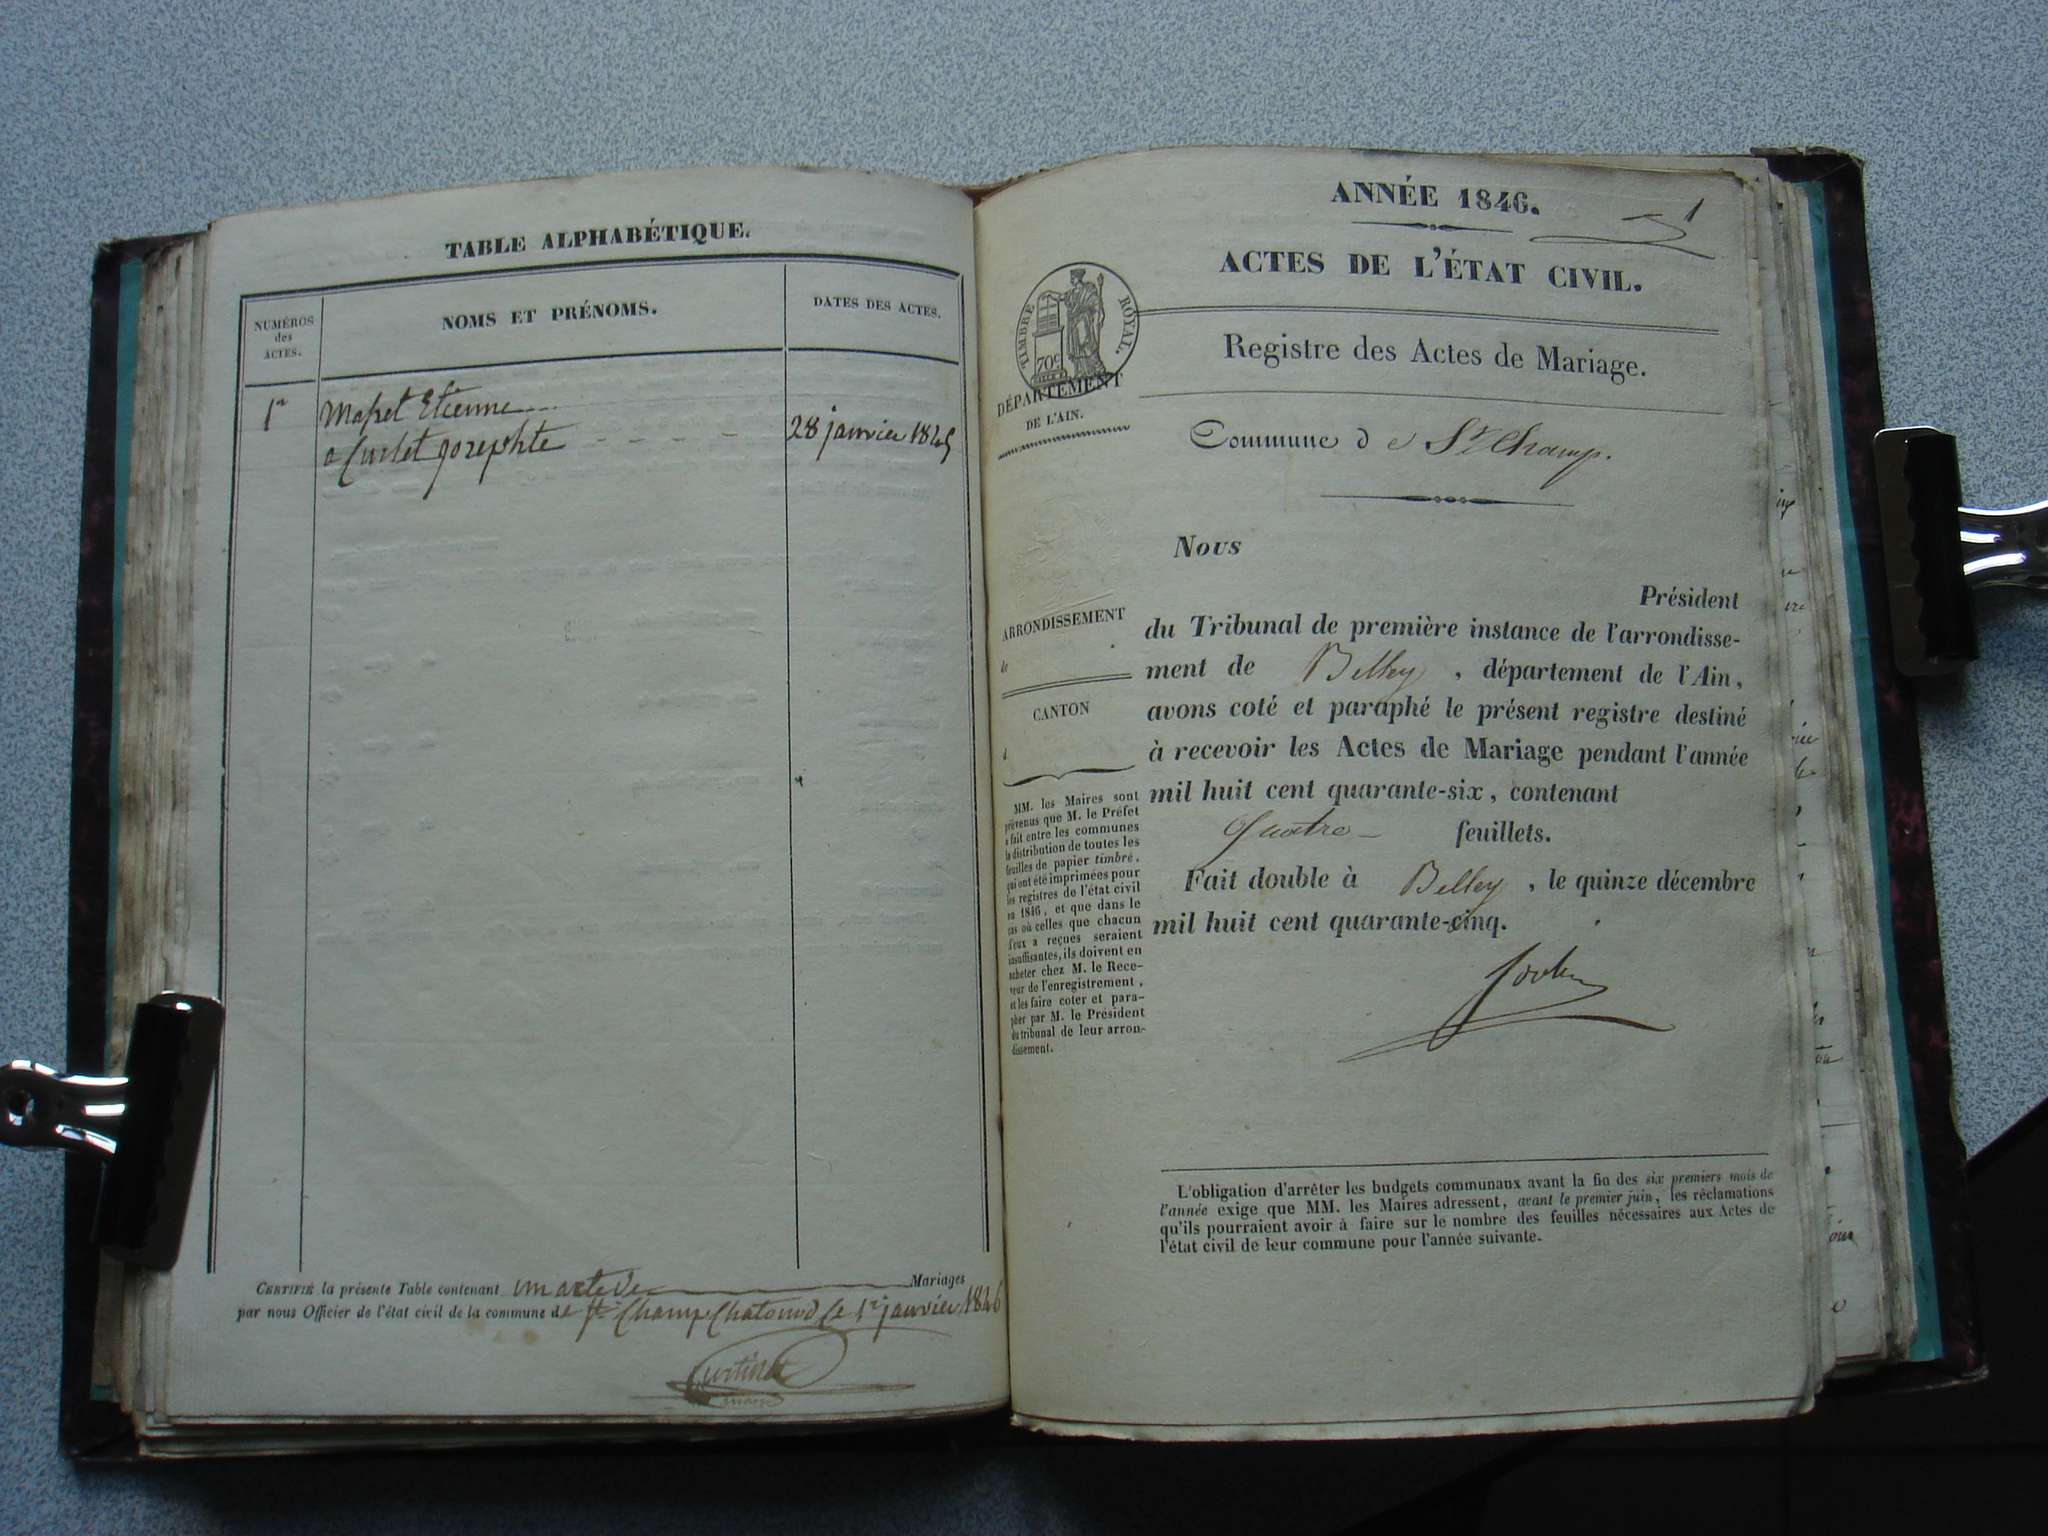 TABLE ALPHABÉTIQUE.
NUMÉROS
des
ACTES.
NOMS ET PRÉNOMS.
DATES DES ACTES.
1er
Mapet Etienne
a Curtet Jozephte
28 janvier 1845
CERTIFIÉ la présente Table contenant un acte de Mariages
par nous Officier de l'état civil de la commune de St Champ Chatonod le 1er janvier 1846
ANNÉE 1846.
1
ACTES DE L'ÉTAT CIVIL.
TIMBRE ROYAL.
70c
DÉPARTEMENT
DE L'AIN.
Registre des Actes de Mariage.
Commune de St Champ.
Nous
Président
du Tribunal de première instance de l'arrondisse-
ment de Belley, département de l'Ain,
avons coté et paraphé le présent registre destiné
à recevoir les Actes de Mariage pendant l'année
mil huit cent quarante-six, contenant
Quatre feuillets.
Fait double à Belley, le quinze décembre
mil huit cent quarante-cinq.
ARRONDISSEMENT
de
CANTON
d
MM. les Maires sont
prévenus que M. le Préfet
a fait entre les communes
la distribution de toutes les
feuilles de papier timbré,
qui ont été imprimées pour
les registres de l'état civil
en 1846, et que dans le
cas où celles que chacun
d'eux a reçues seraient
insuffisantes, ils doivent en
acheter chez M. le Rece-
veur de l'enregistrement,
et les faire coter et para-
pher par M. le Président
du tribunal de leur arron-
dissement.
L'obligation d'arrêter les budgets communaux avant la fin des six premiers mois de
l'année exige que MM. les Maires adressent, avant le premier juin, les réclamations
qu'ils pourraient avoir à faire sur le nombre des feuilles nécessaires aux Actes de
l'état civil de leur commune pour l'année suivante.